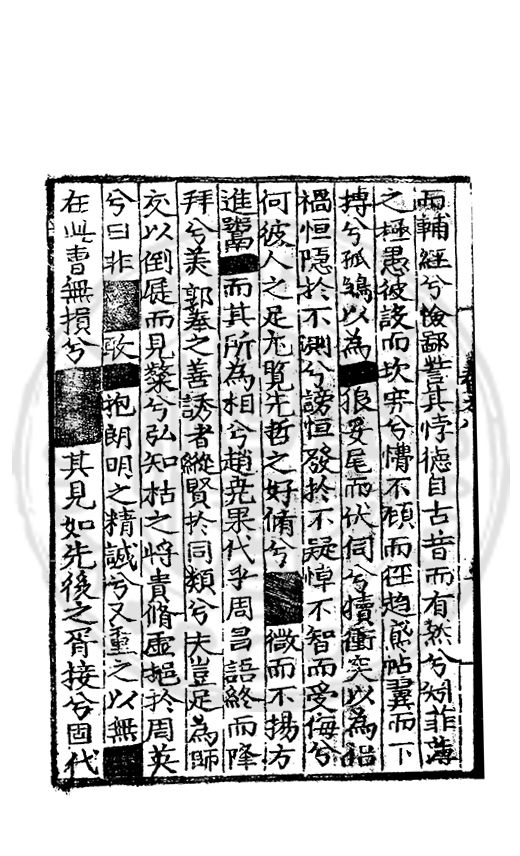 而輔經兮儉鄙訾其悖德自古昔而有然兮矧菲薄
之極愚彼設而坎穽兮懵不顧而徑趋鳶帖翼而下
搏兮孤鶵以為狼妥尾而伏伺兮犢衝突以為
禍恒隱於不測兮謗恒發於不疑悼不智而受侮兮
何彼人之足尤覽先哲之好脩兮微而不揚方
進鬻而其所為相兮趙堯果代乎周昌語終而降
拜兮美郭奉之善誘者縱賢於同類兮夫豈足為師
交以倒屣而見粲兮弘知枯之將貴脩虛挹於周英
兮曰非歌抱朗明之精誠兮又重之以無
在此曹無損兮其見如先後之胥接兮固代